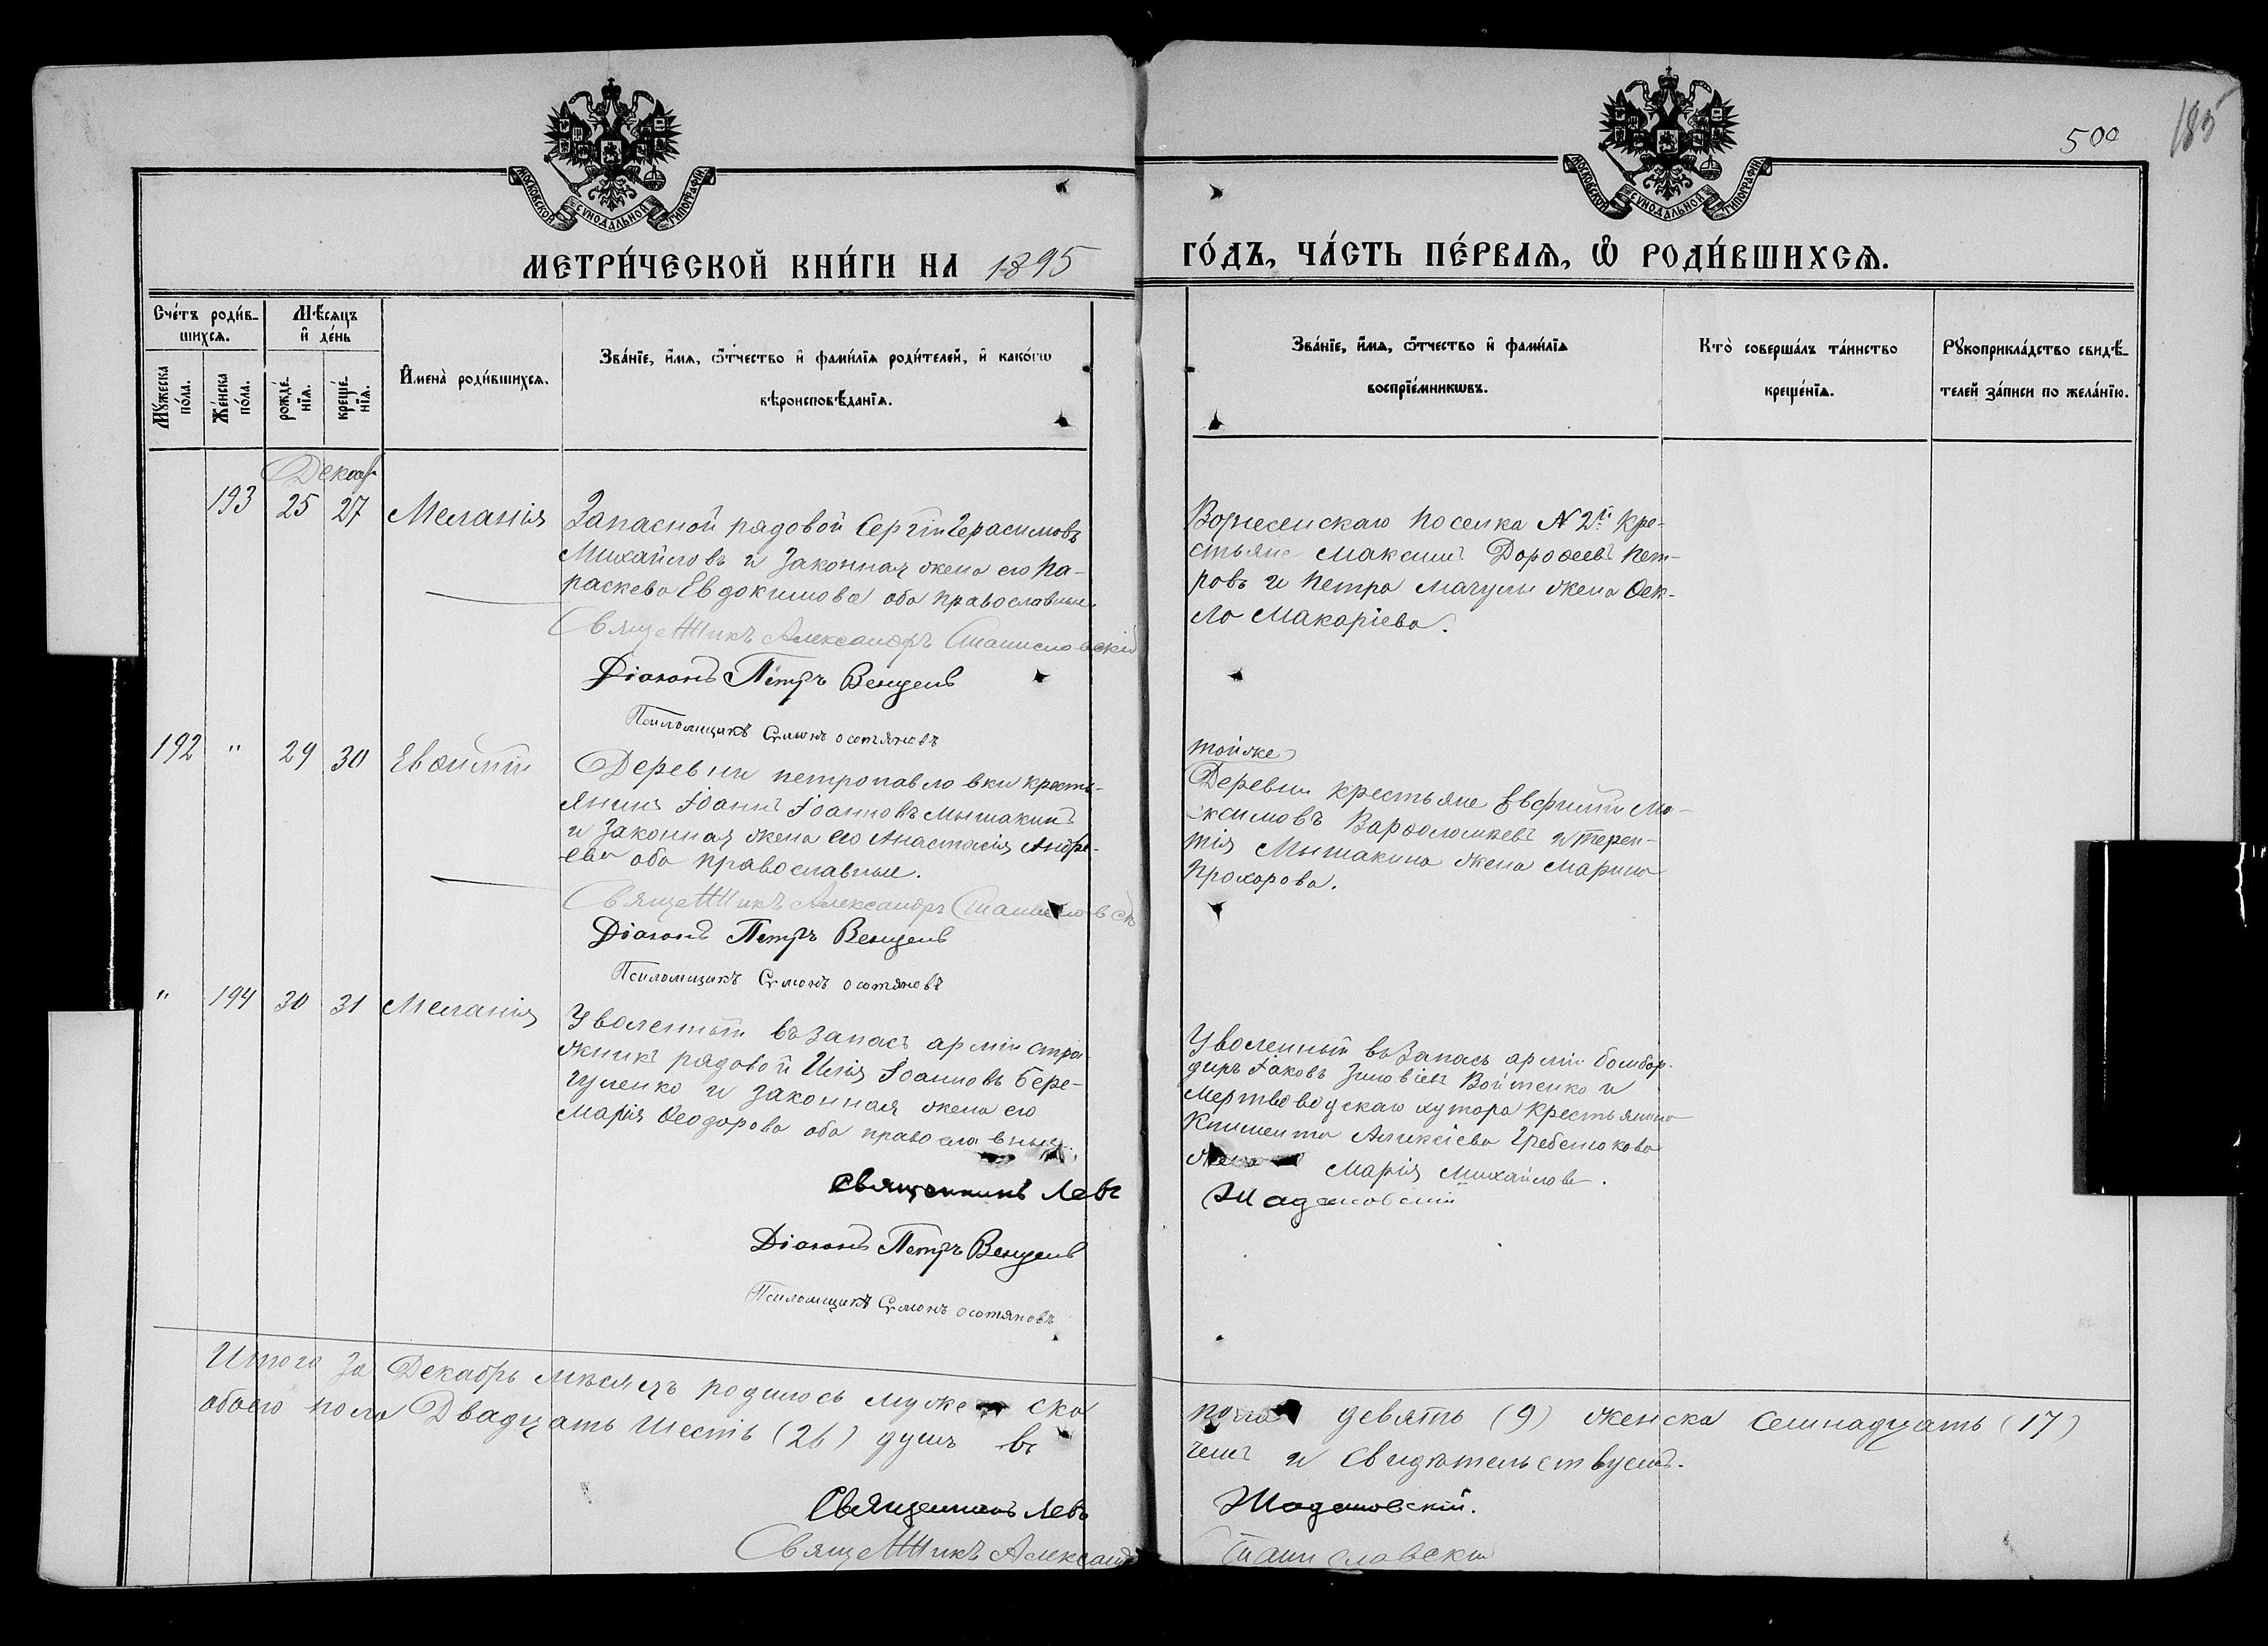 500
185
МОСКОВСКОЙ СѴНОДАЛЬНОЙ ТИПОГРАФІИ
МОСКОВСКОЙ СѴНОДАЛЬНОЙ ТИПОГРАФІИ
МЕТРИ́ЧЕСКОЙ КНИ́ГИ НА 1895
ГО́ДЪ, ЧА́СТЬ ПЕ́РВАѦ, Ѽ РОДИ́ВШИХСѦ.
Сче́тъ роди́в-
шихсѧ.
Мѣ́сѧцъ
и҆ де́нь
Мꙋ́жеска по́ла.
Же́нска по́ла.
рожде́-
нїѧ.
креще́-
нїѧ.
И҆мена̀ роди́вшихсѧ.
Зва́нїе, и҆́мѧ, ѻ҆́тчество и҆ фами́лїѧ роди́телей, и҆ како́гѡ
вѣроисповѣ́данїѧ.
Зва́нїе, и҆́мѧ, ѻ҆́тчество и҆ фами́лїѧ
воспрїе́мникѡвъ.
Кто̀ соверша́лъ та́инство
креще́нїѧ.
Рꙋкоприкла́дство свидѣ́-
телей за́писи по жела́нїю.
Декабр
193 25 27 Меланія
Запасной рядовой Сергій Герасимовъ
Михайловъ и законная жена его Па-
раскева Евдокимова оба православные
Священникъ Александръ Станиславскій
Діаконъ Петръ Венцель
Псаломщикъ Симонъ
Вознесенскаго поселка N 2й кре-
стьяне Максимъ Дорофеевъ Пет-
ровъ и Петра Мачулы жена Фек-
ла Макаріева.
192 " 29 30 Евфимій
Деревни Петропавловки кресть-
янинъ Іоаннъ Іоанновъ Мышакинъ
и законная жена его Анастасія Андре-
ева оба православные.
Священникъ Александръ Станиславск
Діаконъ Петръ Венцель
Псаломщикъ Симонъ
той же
Деревни крестьяне Евфимій Ма-
ксимовъ Варфоломеевъ и Терен-
тія Мышакина жена Марина
Прохорова.
" 194 30 31 Меланія
Уволенный въ запасъ арміи стра-
жникъ рядовой Илія Іоанновъ Бере-
гуленко и законная жена его
Марія Феодорова оба православныя.
Священникъ Левъ
Діаконъ Петръ Венцель
Псаломщикъ Симонъ
Уволенный въ запасъ арміи бомбар-
диръ Іаковъ Зиновіевъ Войтенко и
Мертвоводскаго хутора крестьянина
Климента Алексіева Гребенюкова
жена Марія Михайлова.
Шадановскій
Итого за Декабрь мѣсяцъ родилось мужеска
пола девять (9) женска семнадцать (17)
обоего пола Двадцать шесть (26) душъ въ
чемъ и свидѣтельствуемъ.
Священникъ Левъ
Шадановскій.
Священникъ Александръ
Станиславскій